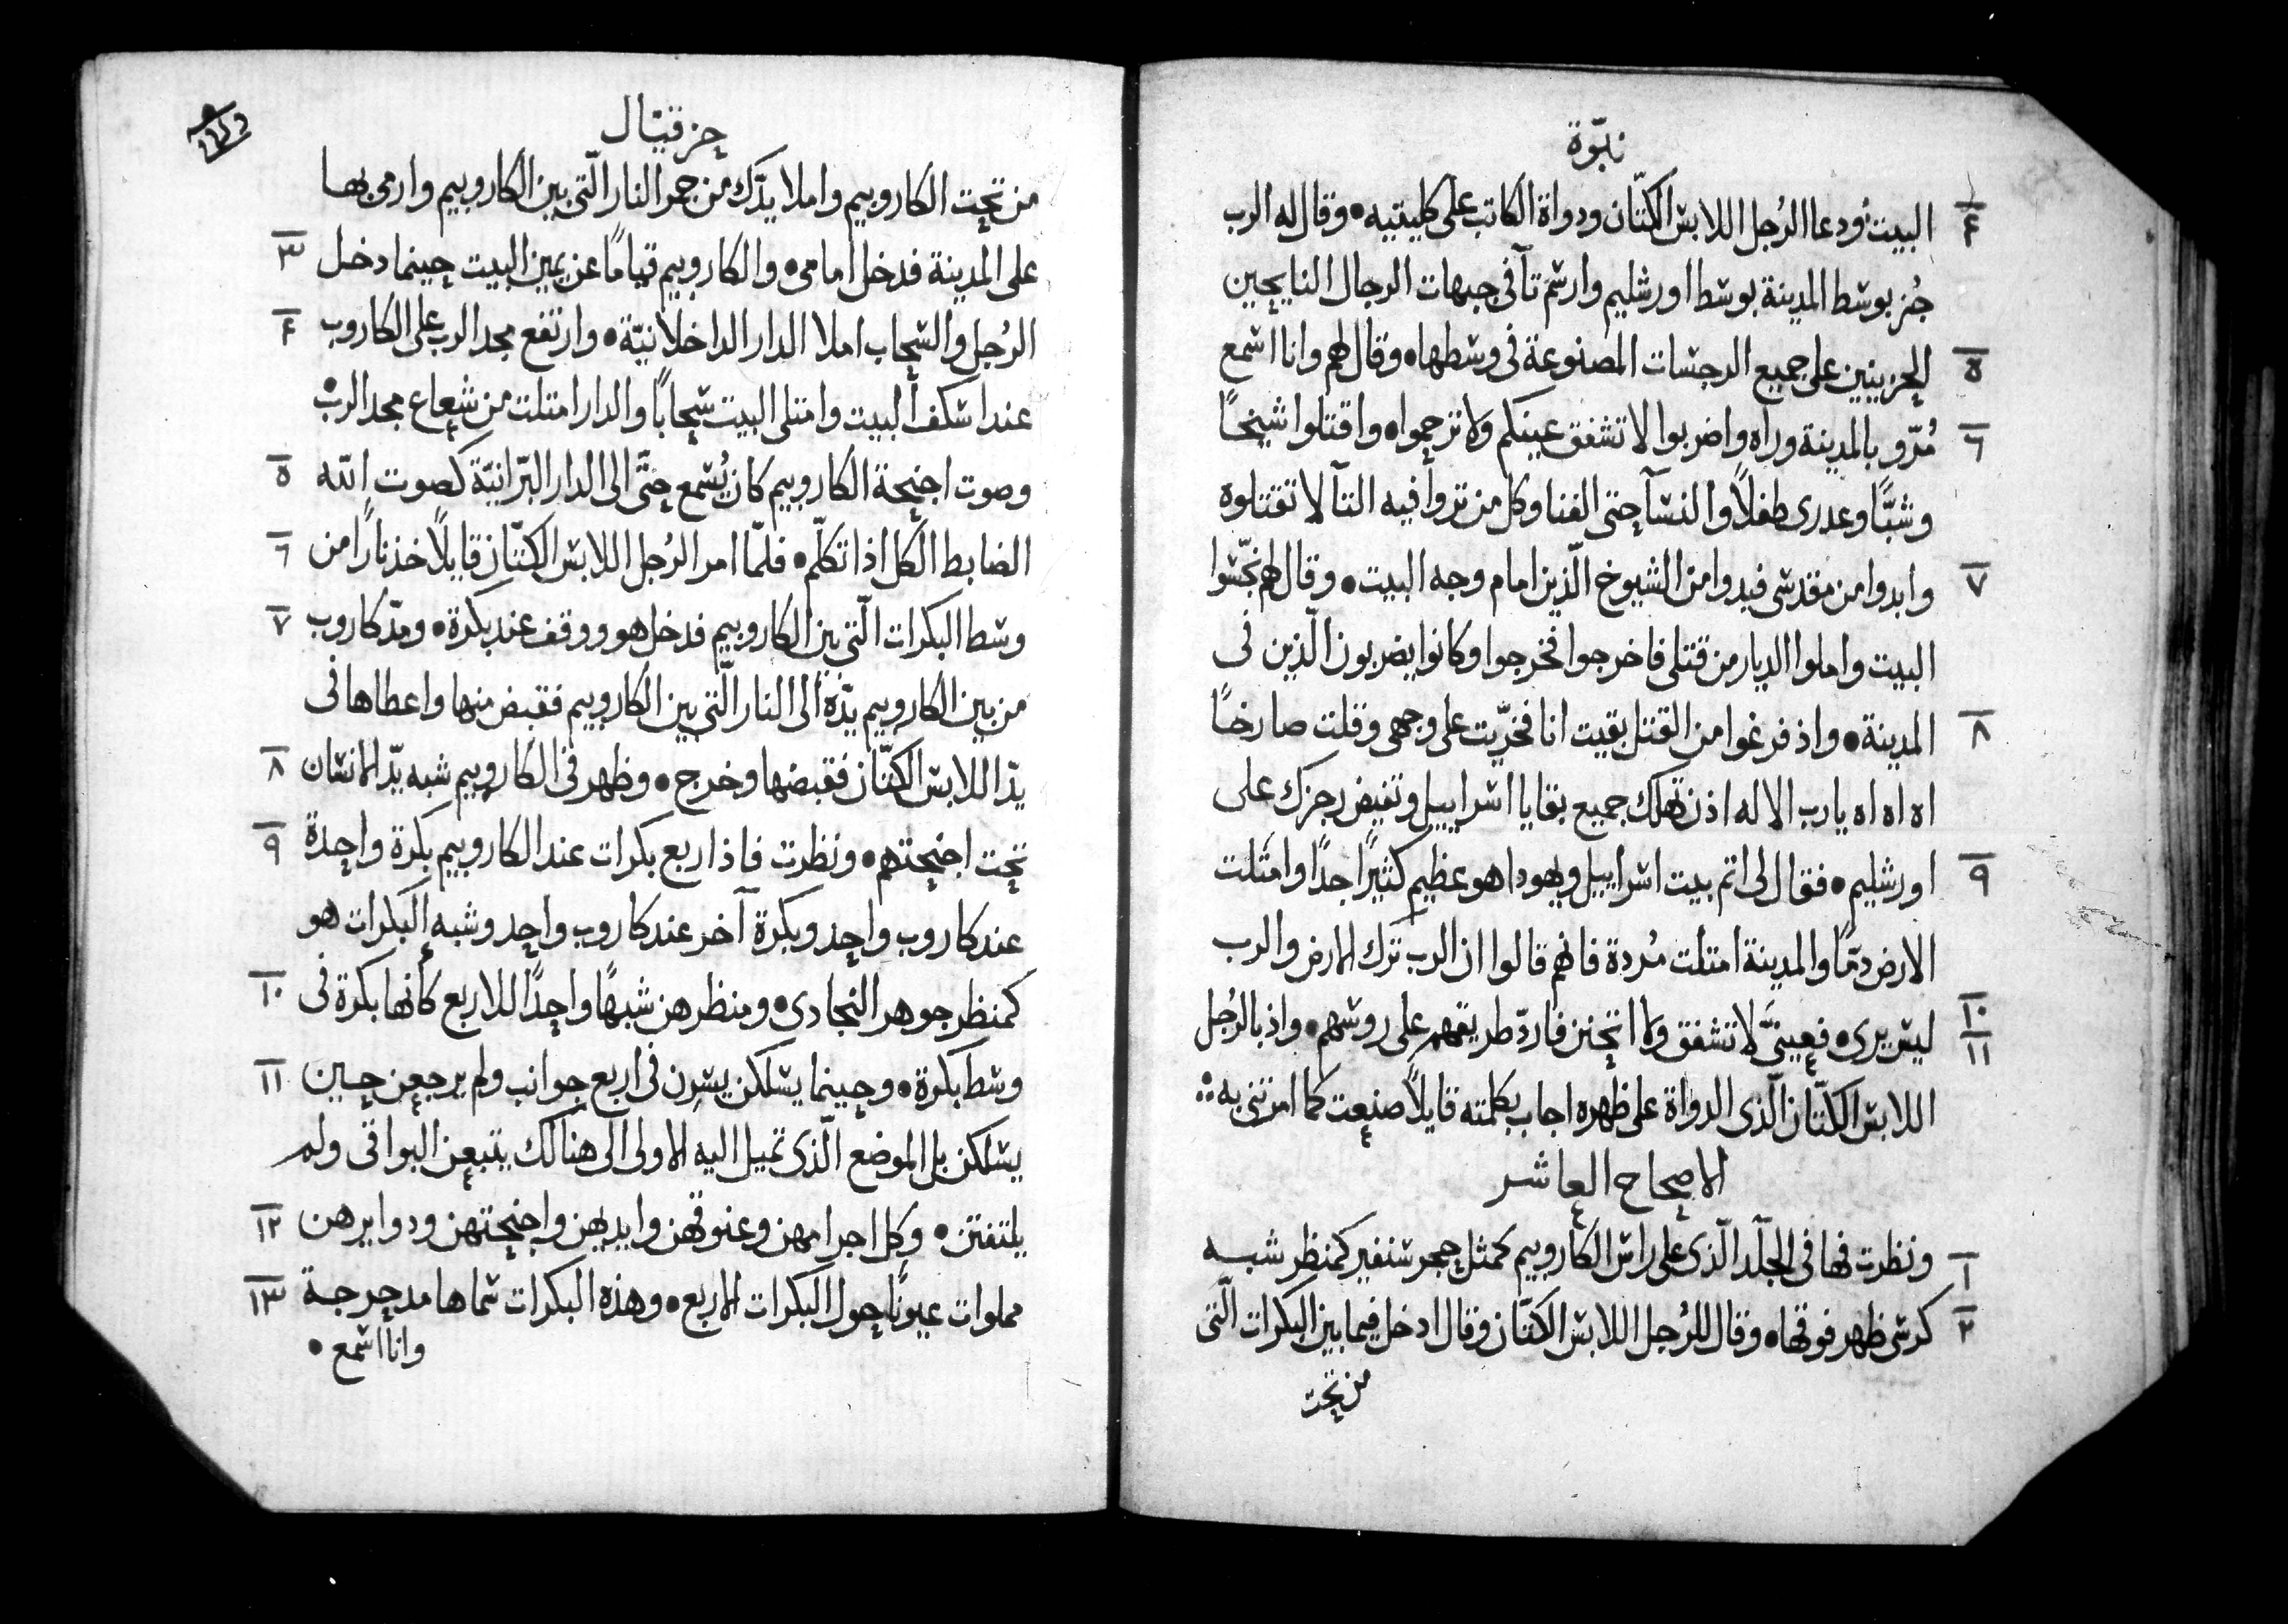 نبوّة
٤ البيت ودعا الرُجل اللابس الكتّان ودواة الكاتب على كليتيه • وقال له الرب
جُز بوسط المدينة بوسط اورشليم وارسم تآ فى جبهات الرجال النايحين
٥ الحزينين على جميع الرجسات المصنوعة فى وسطها • وقال لهم وانا اسمع
٦ مُرّو بالمدينة وراه واضربوا لا تشفق عينكم ولا ترحموا • واقتلوا شيخًا
وشبًّا وعدرى طفلاً والنسآ حتى الفنا وكل من تروا فيه التآ لا تقتلوه
٧ وابدوا من مقدسى فبدوا من الشيوخ الّذين امام وجه البيت • وقال لهم نجّسوا
البيت واملوا الديار من قتلى فاخرجوا فخرجوا وكانوا يضربون الّذين فى
٨ المدينة • واذ فرغوا من القتل بقيت انا فخرّيت على وجهى وقلت صارخًا
اه اه اه يا رب الاله اذن تهلك جميع بقايا اسراييل وتفيض رجزك على
٩ اورشليم • فقال لى اتم بيت اسراييل ويهودا هو عظيم كثيرًا جدًا وامتلت
الارض دمًّا والمدينة امتلت مُردة فانهم قالوا ان الرب ترك الارض والرب
١٠ ١١ ليس يرى • فعينىّ لا تشفق ولا اتحنن فاردّ طريقهم على روسهم • واذ بالرُجل
اللابس الكتّان الّذى الدواة على ظهره اجاب بكلمته قايلاً صنعت كما امرتنى به
الاصحاح العاشر
١ ونظرت فها فى الجلد الّذى على راس الكاروبيم كمثل حجر سنفير كمنظر شبه
٢ كرسى ظهر فوقها • وقال للرُجل اللابس الكتّان وقال ادخل فيما بين البكرات الّتى
من تحت
حزقيال
من تحت الكاروبيم واملا يدّك من جمر النار الّتى بين الكاروبيم وارمى بها
على المدينة فدخل امامى • والكاروبيم قيامًا عن يمين البيت حينما دخل ٣
الرُجل والسحاب املا الدار الداخلانيّة • وارتفع مجد الرب على الكاروب ٤
عند اسكف البيت وامتلى البيت سحابًا والدار امتلت من شعاع مجد الرب •
وصوت اجنحة الكاروبيم كان يُسمع حتّى الى الدار البرّانيّة كصوت الله ٥
الضابط الكل اذا تكلّم • فلمّا امر الرُجل اللابس الكتّان قايلاً خذ نارًا من ٦
وسط البكرات الّتى بين الكاروبيم فدخل هو ووقف عند بكرة • ومدّ كاروب ٧
من بين الكاروبيم يدّه الى النار الّتى بين الكاروبيم فقبض منها واعطاها فى
يدّ اللابس الكتّان فقبضها وخرج • وظهر فى الكاروبيم شبه يدّ الانسان ٨
تحت اجنحتهم • ونظرت فاذا اربع بكرات عند الكاروبيم بكرة واحدة ٩
عند كاروب واحد وبكرة آخر عند كاروب واحد وشبه البكرات هو
كمنظر جوهر النجادى • ومنظرهن شبهًا واحدًا للاربع كانها بكرة فى ١٠
وسط بكرة • وحينما يسلكن يسِرن فى اربع جوانب ولم يرجعن حين ١١
يسلكن بل الموضع الّذى تميل اليه الاولى الى هنالك يتبعن البواقى ولم
يلتفتن • وكل اجرامهن وعنوقهن وايديهن واجنحتهن ودوايرهن ١٢
مملوات عيونًا حول البكرات الاربع • وهذه البكرات سماها مدحرجة ١٣
وانا اسمع •